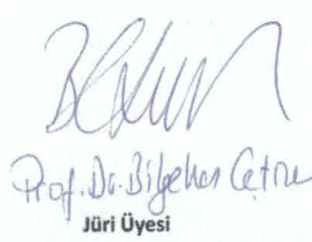 Prof. Dr. Bilgehan Çetin
Jüri Üyesi